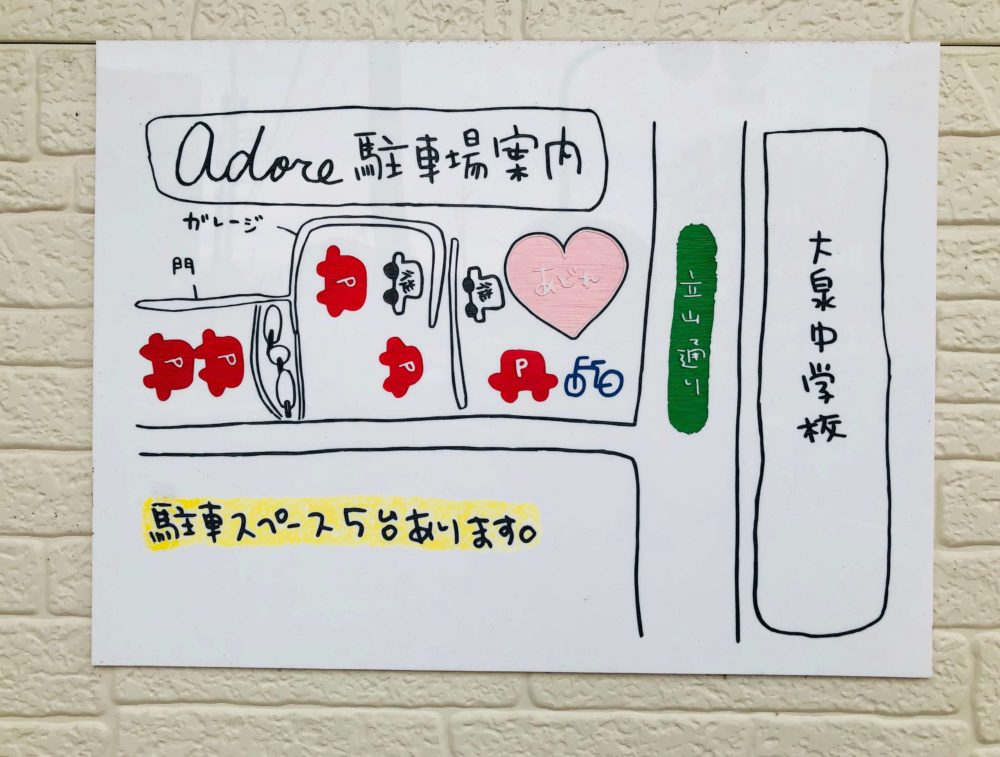 adore 駐車場案内
ガレージ
門
P
P
P
P
P
あどれ
立山通り
大泉中学校
駐車スペース5台あります。